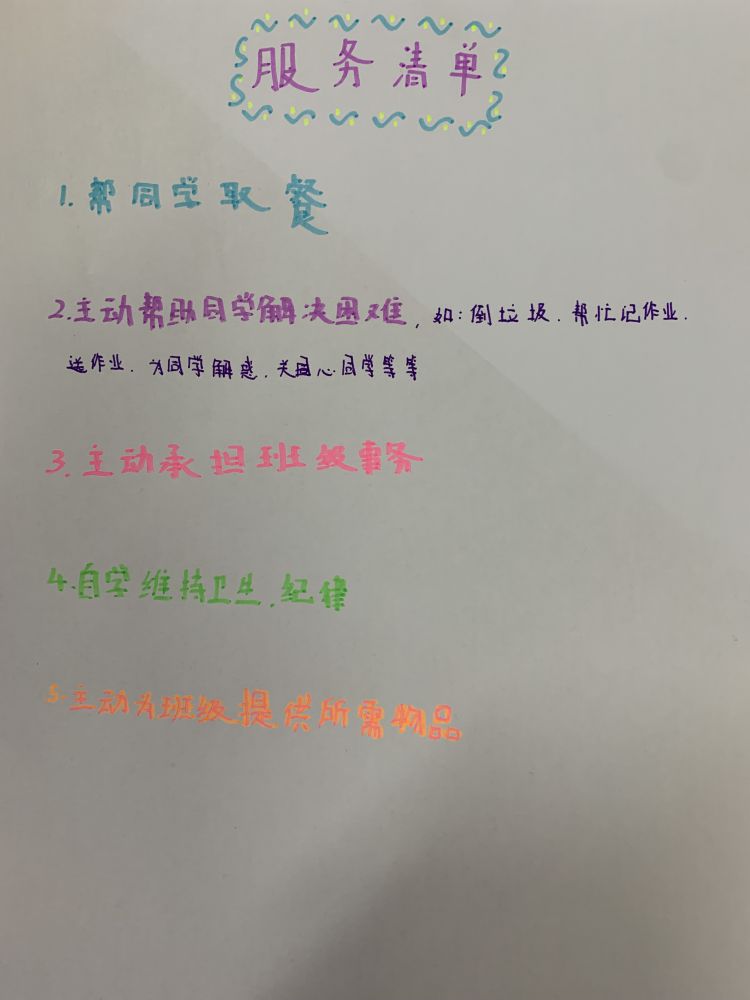 服务清单
1.帮同学取餐
2.主动帮助同学解决困难,如:倒垃圾.帮忙记作业.
送作业.为同学解惑.关心同学等等
3.主动承担班级事务
4.自学维持卫生.纪律
5.主动为班级提供所需物品